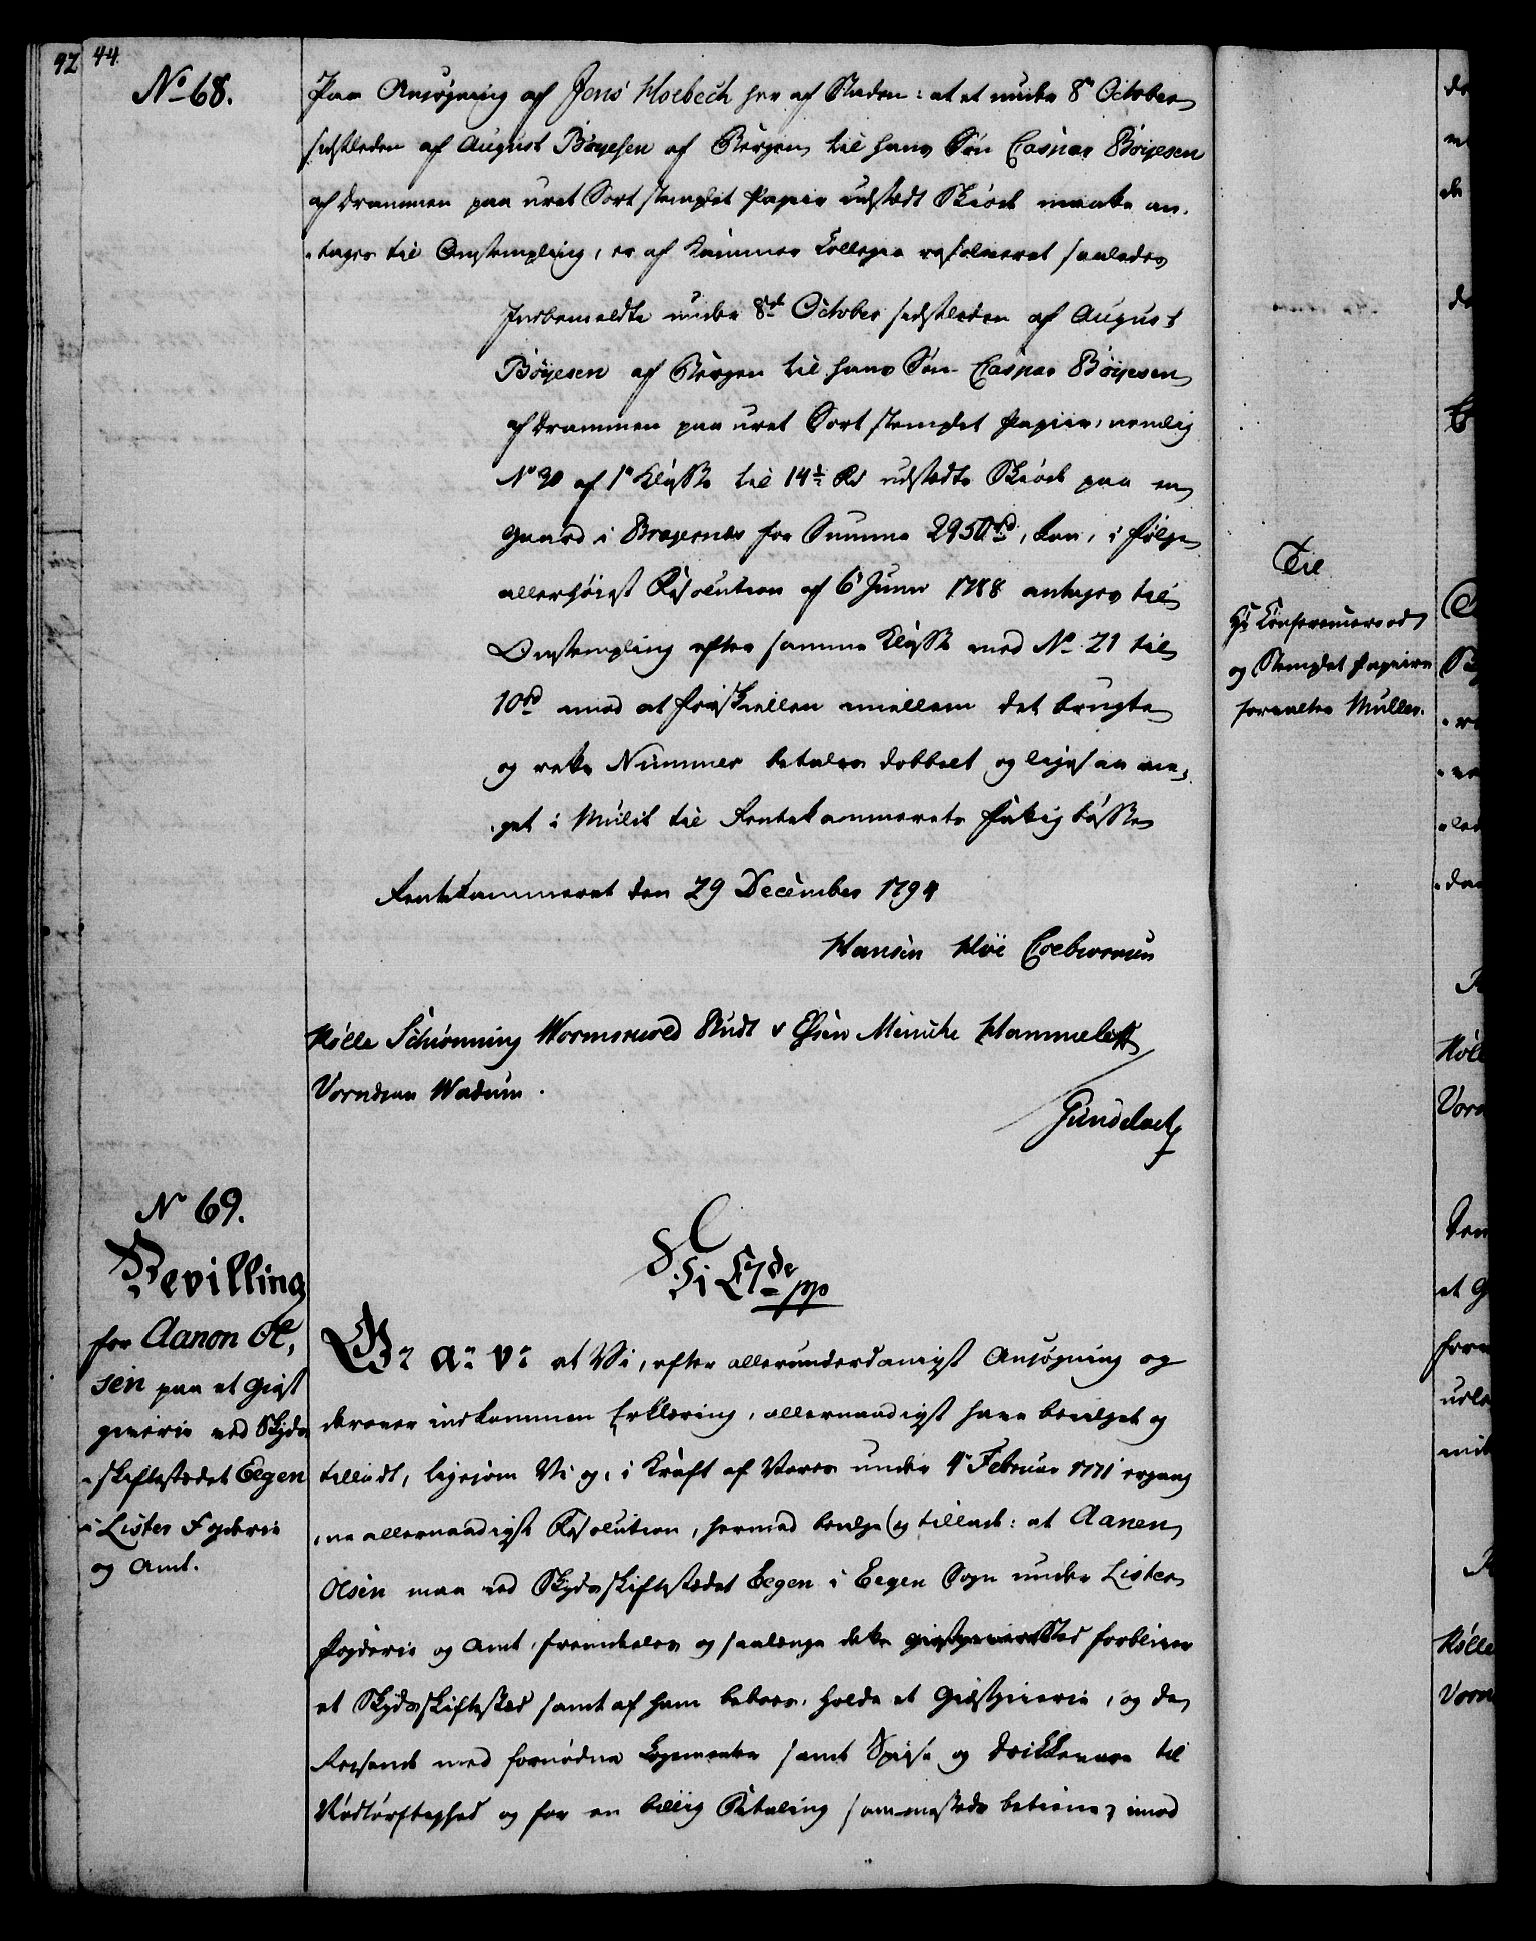 92
44
No 68.
Paa Ansøgning af Jens Moebech her af Staden: at et under 8de October
sidstleden af August Bøyesen af Bergen til hans Søn Casper Böyesen
af Drammen paa uret Sort stemplet Papir udstædt Skiøde maatte an-
-tages til Omstempling, er af Kammer Collegio resolveret saaledes
Indbemeldte under 8de October sidstleden af August
Böyesen af Bergen til hans Søn Caspar Böyesen
af Drammen paa uret Sort stemplet Papiir, nemlig
No 20 af 1te Klasse til 14½ Rd udstædte Skiøde paa en
Gaard i Bragernes for Summa 2950 rd, kan, i følge
allerhøieste Resolution af 6 Juni 1788 antages til
Omstempling efter samme Klasse med No 21 til
10rd imod at forskiellen imellem det brugte
og rette Nummer betales dobbelt og ligesaa me-
-get i Mulct til Rentekammerets Fattigbøsse
Rentekammeret den 29 December 1794
Hansen Høe Colbiørnsen
Mölle Schiønning Wormskiold Rudt v Essen Meincke Hammeleff
Vorndran Wadum.
Gundelach
Til
Hr Conferenceraad
og Stemplet Papiirs
forvalter Muller.
No 69.
Bevilling
for Aanon Ol,
sen paa et Giæst
giverie ved Skyds
-skiftestædet Eegen
i Lister Fogderie
og Amt.
Vi C7de pp
G: A: V: at Vi, efter allerunderdanigst Ansøgning og
derover indkommen Erklæring, allernaadigst have bevilget og
tilladt, ligesom Vi og, i Kraft af Vores under 4de Februar 1771 ergang
-ne allernaadigste Resolution, hermed bevilge og tillade: at Aanen
Olsen maa ved Skydsskiftestædet Eegen i Eegen Sogn under Lister
Fogderie og Amt, fremdeles og saalænge dette giæstgiverSted forbliver
et Skydsskiftested samt af ham beboes, holde et Giæstgiverie, og de
Reisende med fornødne Logementer samt Spise og Drikkevare til
Nødtørftighed og for en billig Betaling sammestæds betiene; imod